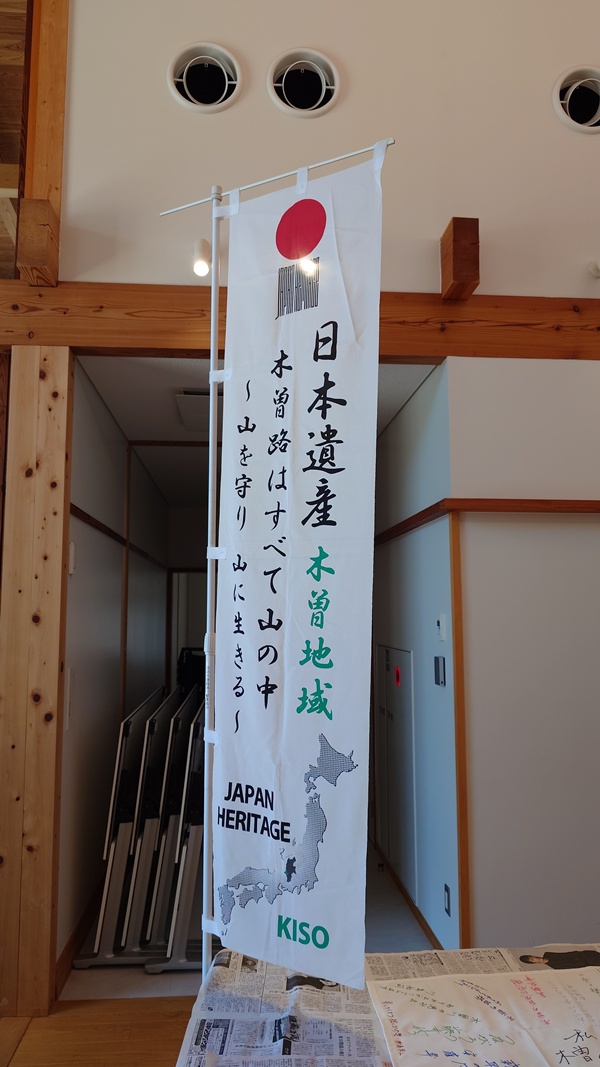 日本遺産 木曽地域
木曽路はすべて山の中
～山を守り 山に生きる～
JAPAN
HERITAGE
KISO